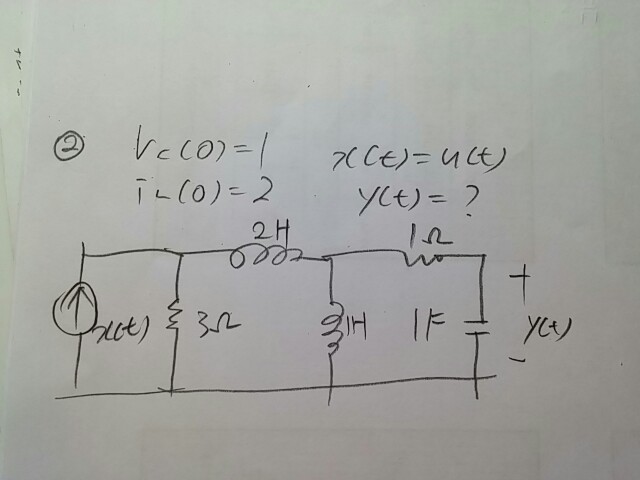 ② Vc(0)=1 x(t)=u(t)
iL(0)=2 y(t)=?
2H 1Ω
x(t) 3Ω 1H 1F + y(t) -